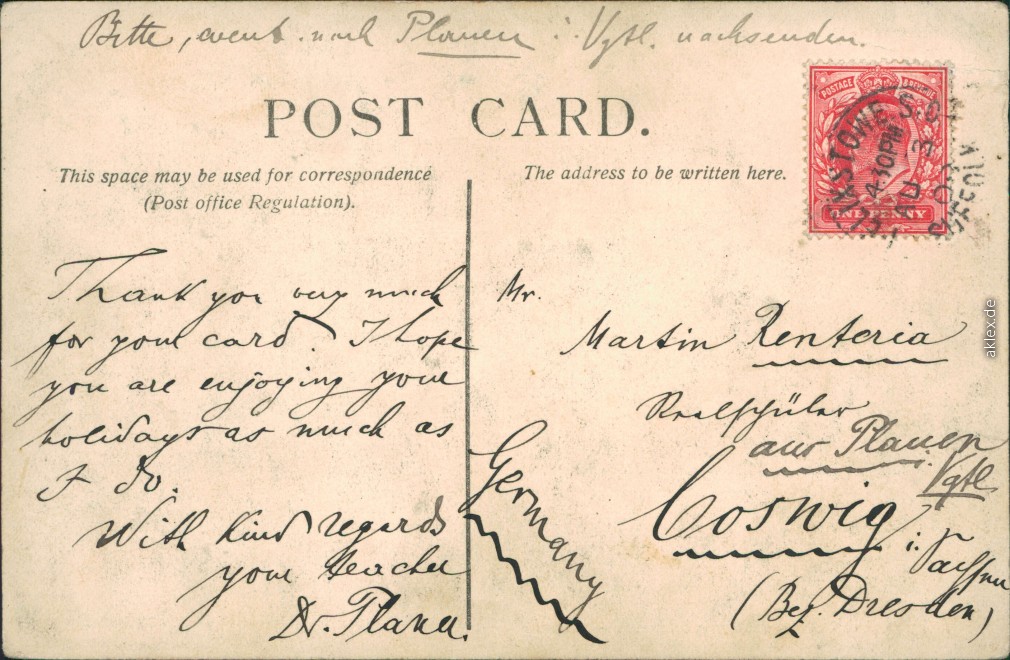 Bitte, event. nach Plauen i. Vgtl. nachsenden.
POST CARD.
This space may be used for correspondence
(Post office Regulation).
The address to be written here.
POSTAGE & REVENUE
ONE PENNY
FELIXSTOWE S.O.
4.30PM
SUFFOLK
Thank you very much
for your card. I hope
you are enjoying your
holidays as much as
I do.
With kind regards
your teacher
Dr.
Mr.
Martin Renteria
Realschüler
aus Plauen
i. Vgtl
Coswig
i. Sachsen
(Bez. Dresden)
Germany
aklex.de